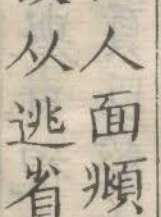 人面頫
从逃省